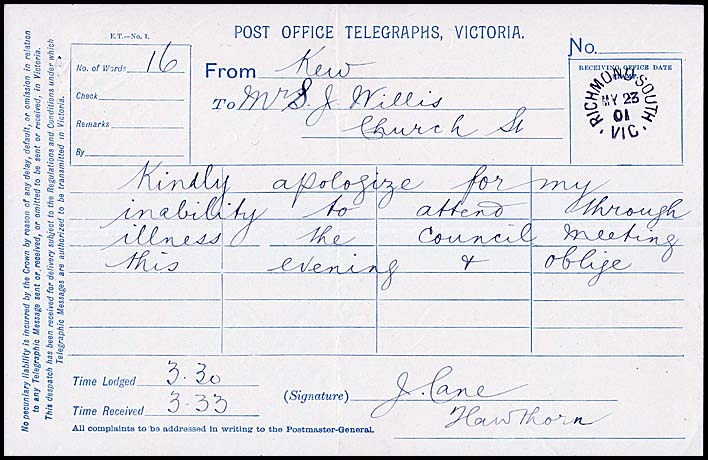 No pecuniary liability is incurred by the Crown by reason of any delay, default, or omission in relation
to any Telegraphic Message sent or received, or omitted to be sent or received, in Victoria.
This despatch has been received for delivery subject to the Regulations and Conditions under which
Telegraphic Messages are authorized to be transmitted in Victoria.
E.T.—No. 1.
POST OFFICE TELEGRAPHS, VICTORIA.
No. of Words 16
Check
Remarks
By
No.
From Kew
To Mr S. J. Willis
Church St
RECEIVING OFFICE DATE
RICHMOND SOUTH
MY 23
01
VIC
Kindly apologize for my
inability to attend through
illness the council meeting
this evening & oblige
Time Lodged 3.30
Time Received 3.33
(Signature) J. Cane
Hawthorn
All complaints to be addressed in writing to the Postmaster-General.